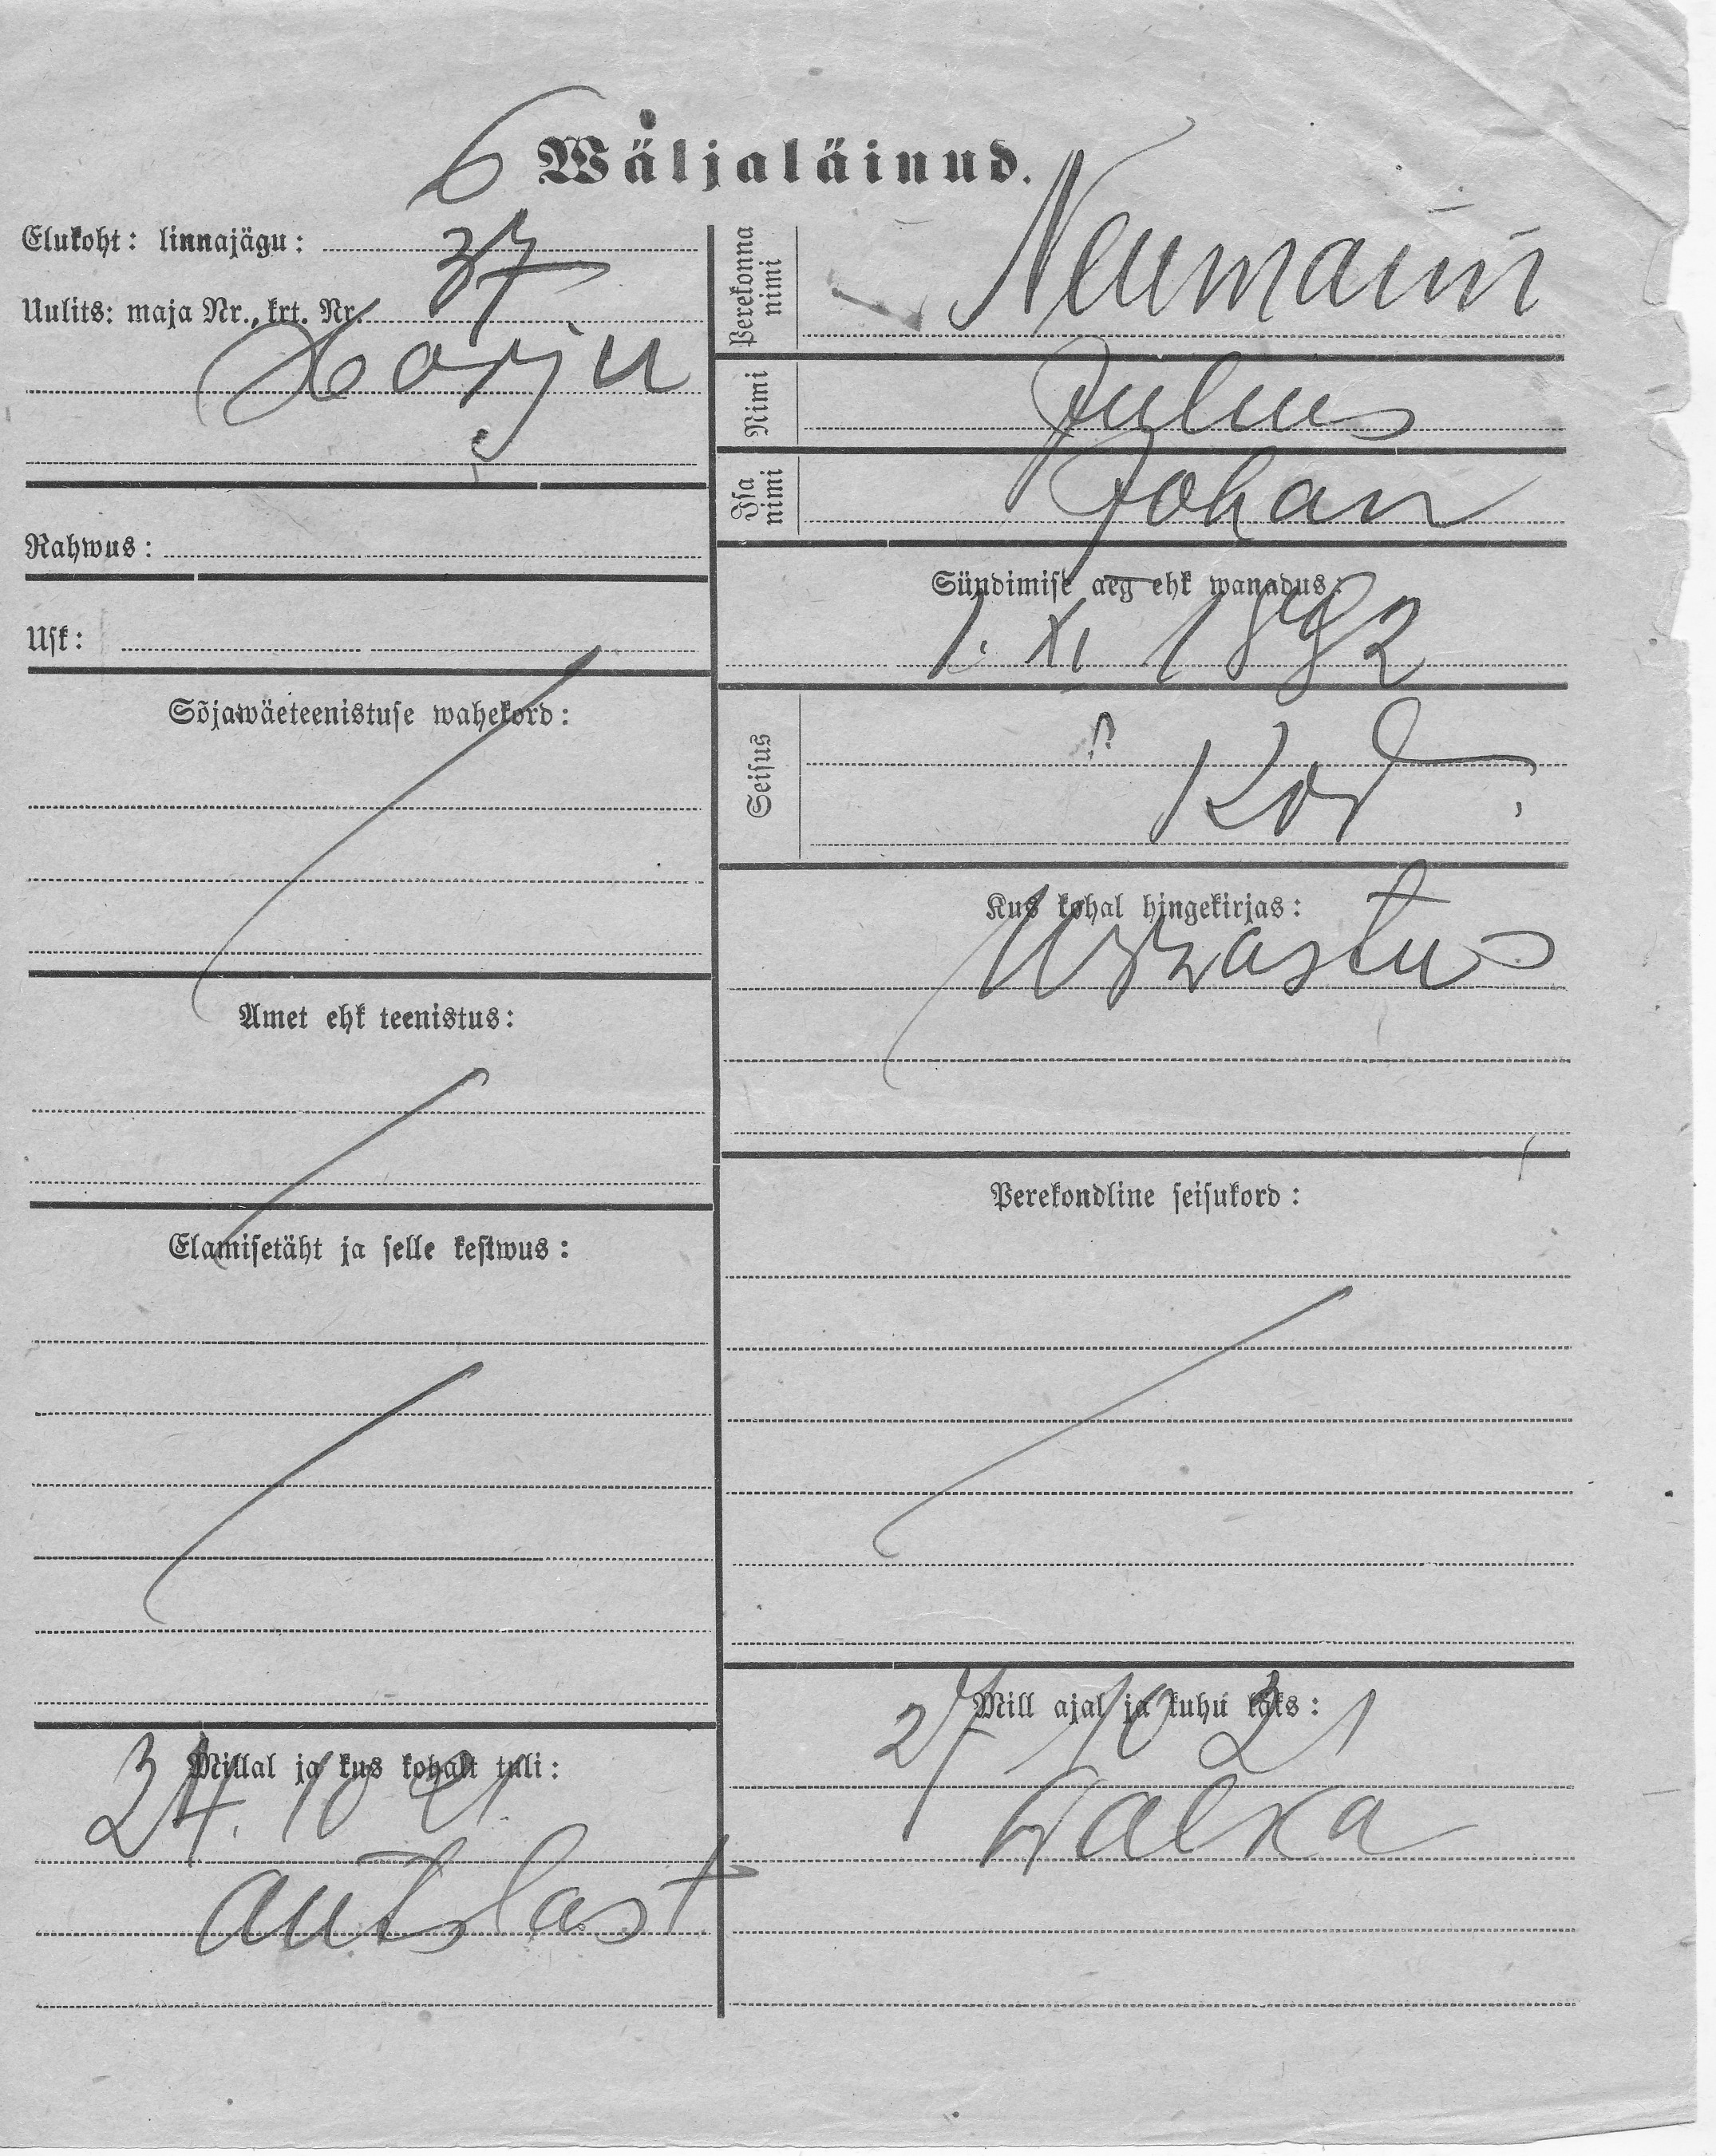 6 Wäljaläinud.
Elukoht: linnajägu:
37
Uulits: maja Nr., krt. Nr.
Harju
Rahwus:
Usk:
Sõjawäeteenistuse wahekord:
Amet ehk teenistus:
Elamisetäht ja selle kestwus:
Millal ja kus kohalt tuli:
24. 10 21.
Perekonna nimi
Neumann
Nimi
Julius
Isa nimi
Johan
Sündimise aeg ehk wanadus:
1. XI 1892
Seisus
Kod
Kus kohal hingekirjas:
Urwastus
Perekondline seisukord:
Mill ajal ja kuhu läks:
27 10 21
Walka